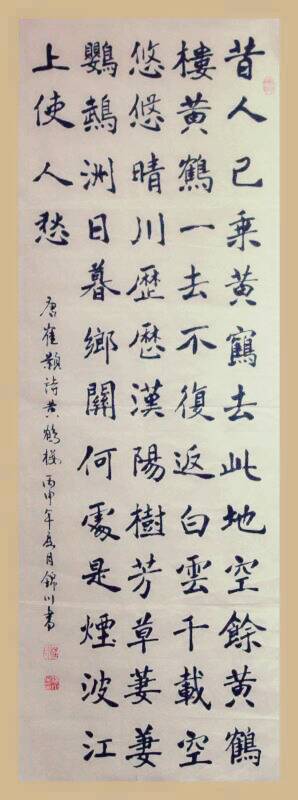 昔人已乘黃鶴去此地空餘黃鶴
樓黃鶴一去不復返白雲千載空
悠悠晴川歷歷漢陽樹芳草萋萋
鸚鵡洲日暮鄉關何處是煙波江
上使人愁
唐崔顥詩黃鶴樓 丙申年月錦川書